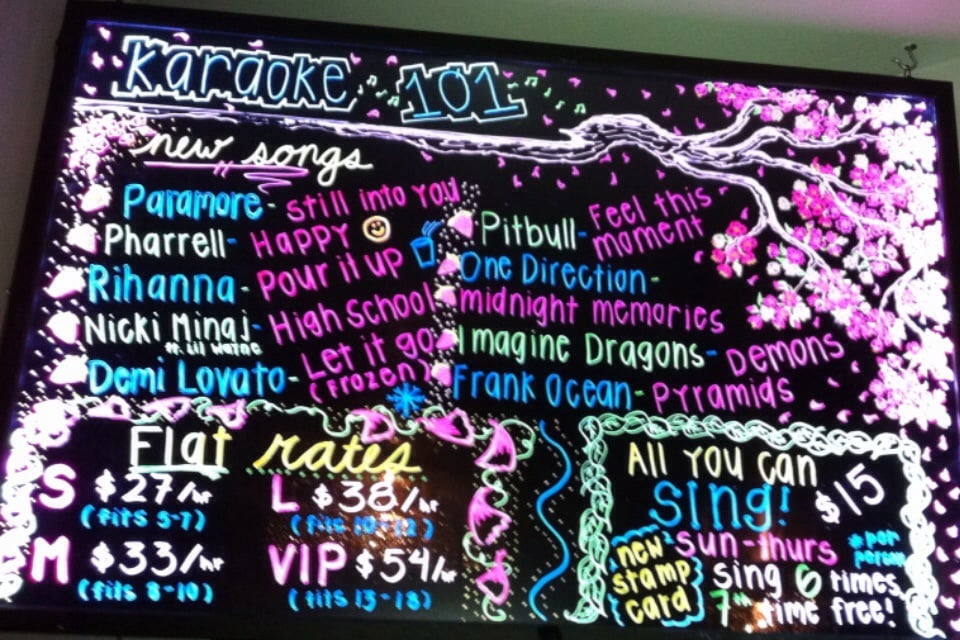 Karaoke 101
new songs
Paramore - Still into You
Pharrell - Happy
Rihanna - Pour it up
Nicki Minaj - High School
ft. Lil Wayne
Demi Lovato - Let it go
(Frozen)
Pitbull - Feel this
moment
One Direction -
midnight memories
Imagine Dragons - Demons
Frank Ocean - Pyramids
Flat rates
S $27/hr
(fits 5-7)
M $33/hr
(fits 8-10)
L $38/hr
(fits 10-12)
VIP $54/hr
(fits 13-18)
All you can
Sing! $15
Sun-Thurs *per
person
new
stamp
card
Sing 6 times
7th time free!